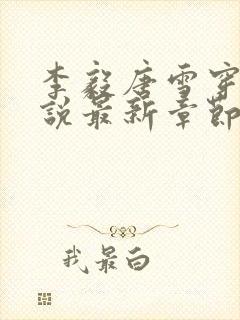 李毅唐雪穿
說最新章節
我最白